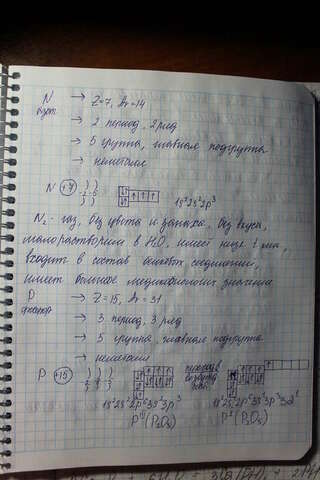 N → Z=7, Ar=14
азот → 2 период, 2 ряд
→ 5 группа, главная подгруппа
→ неметалл
N +7 ) ) 2 5 1s²2s²2p³
N₂ - газ, без цвета и запаха, без вкуса,
малорастворим в H₂O, имеет
входит в состав соединений,
имеет большое значение
P → Z=15, Ar=31
фосфор → 3 период, 3 ряд
→ 5 группа, главная подгруппа
→ неметалл
P +15 ) ) )
1s²2s²2p⁶3s²3p³
(P₂O₅)